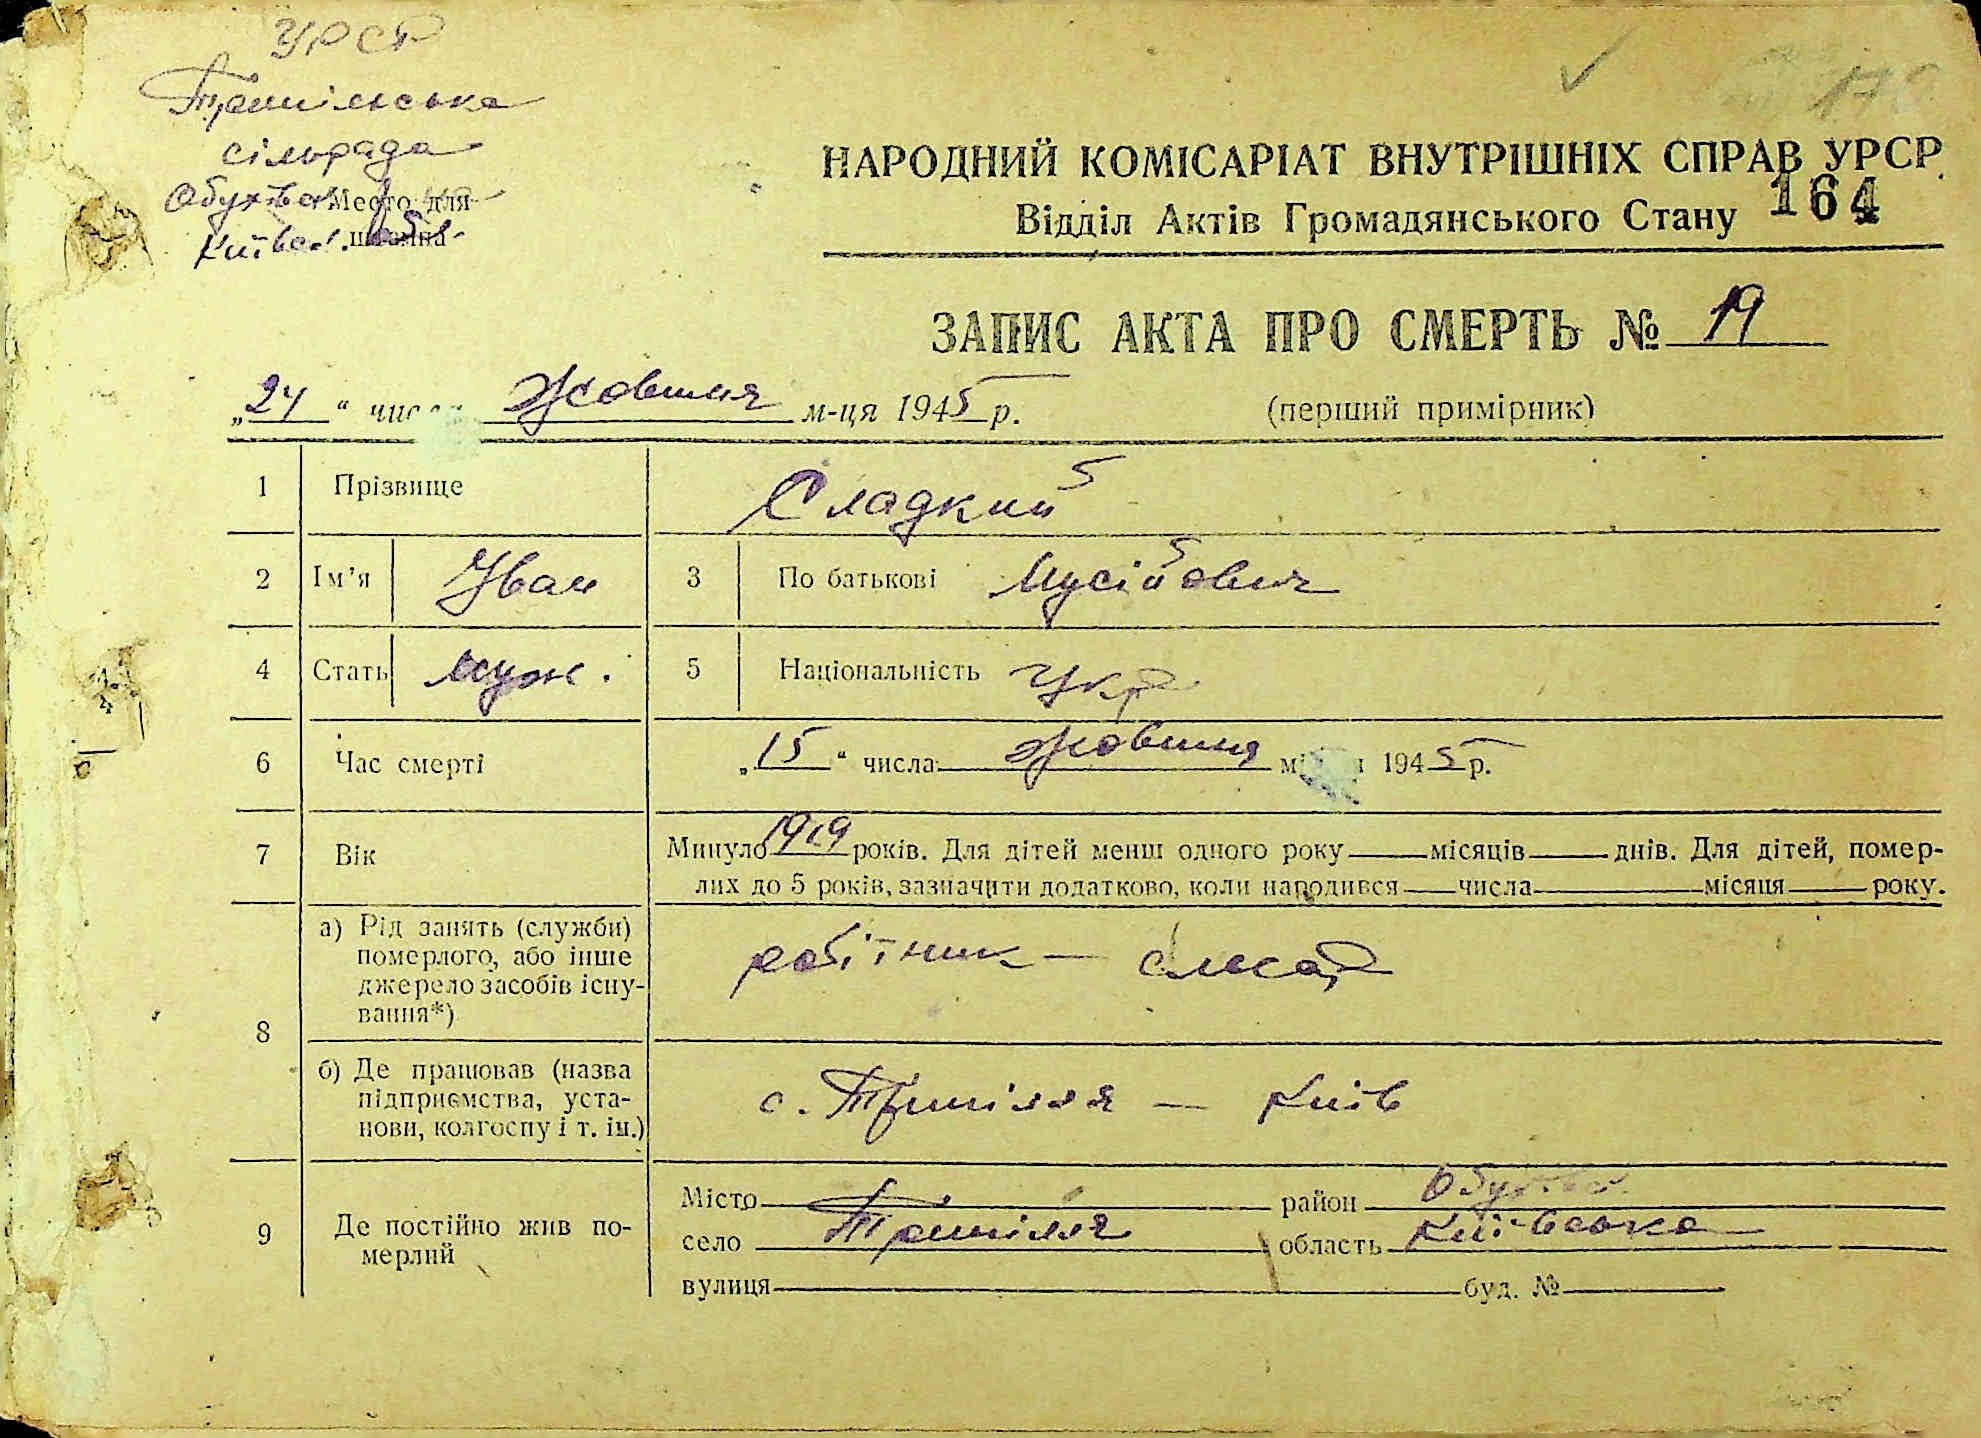 УРСР
Трипільська
сільрада
Обухівськ
Место для
Київськ. обл.
штампа
НАРОДНИЙ КОМІСАРІАТ ВНУТРІШНІХ СПРАВ УРСР
164
Відділ Актів Громадянського Стану
ЗАПИС АКТА ПРО СМЕРТЬ № 19
„24“ числа Жовтня м-ця 1945 р. (перший примірник)
1 Прізвище Сладкий
2 Ім’я Іван 3 По батькові Мусійович
4 Стать муж. 5 Національність Укр
6 Час смерті „15“ числа Жовтня місяця 1945 р.
7 Вік Минуло 1919 років. Для дітей менш одного року місяців днів. Для дітей, помер-
лих до 5 років, зазначити додатково, коли народився числа місяця року.
8 а) Рід занять (служби)
померлого, або інше
джерело засобів існу-
вання*)
робітник — слюсар
б) Де працював (назва
підприємства, уста-
нови, колгоспу і т. ін.)
с. Трипілля — Київ
9 Де постійно жив по-
мерлий
Місто район Обухів
село Трипілля область Київська
вулиця буд. №